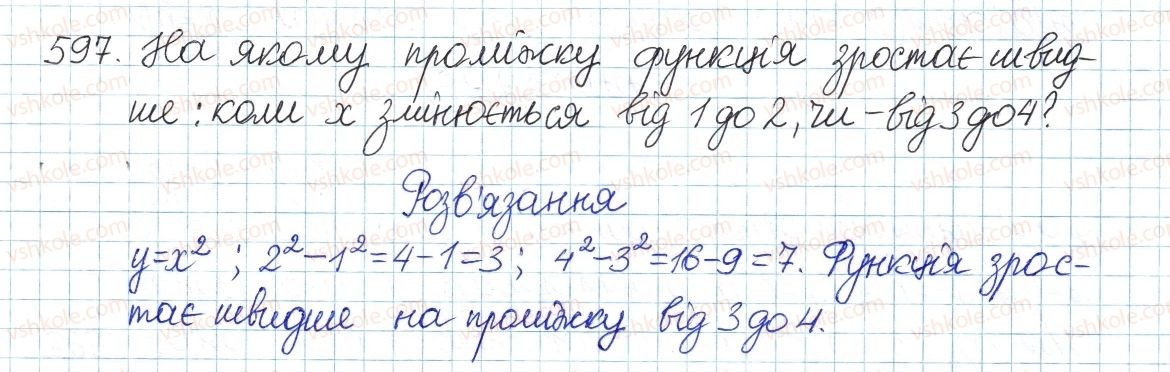 597. На якому проміжку функція зростає швид-
ше: коли x змінюється від 1 до 2, чи - від 3 до 4?
Розв'язання
y=x²; 2²-1²=4-1=3; 4²-3²=16-9=7. Функція зрос-
тає швидше на проміжку від 3 до 4.